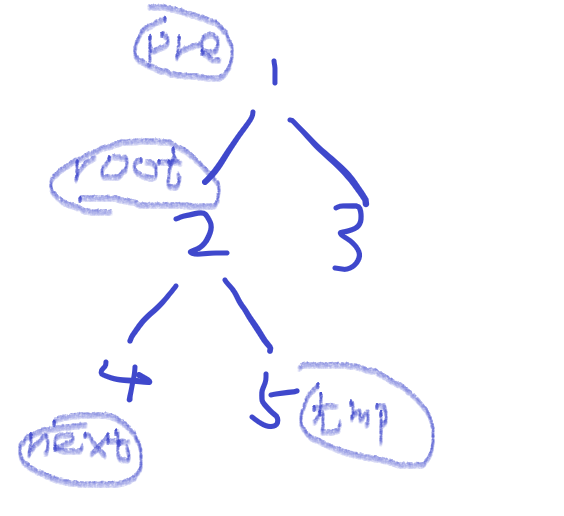 pre
1
root
2 3
4 5 tmp
next